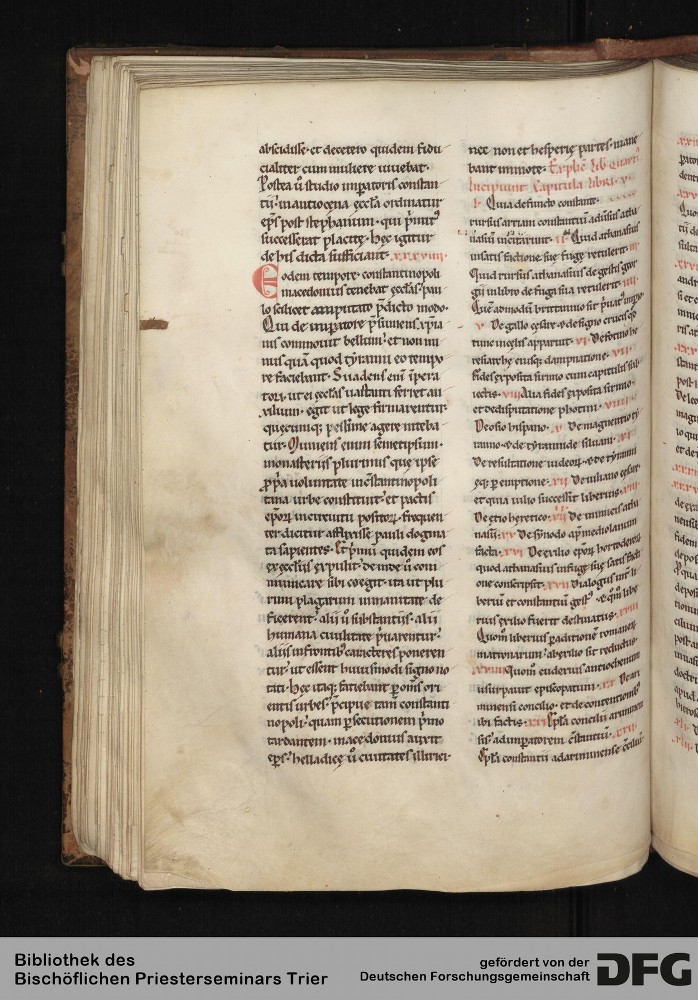 abscidisse· et decetero quidem fidu
cialiter cum muliere vivebat·
Postea ũ studio imꝑatoris constan
tii· in antiocena ęccła ordinatur
ep̃s post stephanum· qui p̃mitꝰ
successerat placito· hęc igitur
de his dicta sufficiant· xxxviiii·
Eodem tempore· constantinopoli
macedonius tenebat ęccłas· pau
lo scilicet amputato p̃dicto modo·
Qui de imꝑatore p̃sumens· xp̃ia
nis commovit bellum· et non mi
nus quã quod tyranni eo tempo
re faciebant· Suadens eni ĩpera
tori· ut ei ęccłas vastanti ferret au
xilium· egit ut lege firmarentur·
quęcumq; pessime agere niteba
tur· Muniens enim semetipsum·
monasteriis plurimis quę ipse
ꝓpria voluntate in cõstantinopoli
tana urbe constituit· et pactis
ep̃oꝝ in circuitu positoꝝ· frequen
ter dicitur afflixisse pauli dogma
ta sapientes· Et p̃mũ quidem eos
ex ęccłiis expulit· deinde ũ com
municare sibi coegit· ita ut plu
rimi plagarum inmanitate de
ficerent· alii ũ substantiis· alii
humana civilitate p̃varentur·
aliis in frontib; caracteres poneren
tur· ut essent huiusmodi signo no
tati· hęc itaq; faciebant ꝑ om̃s ori
entis urbes· p̃cipue tam constanti
nopoli· quam ꝑsecutionem p̃mo
tardantem· macedonius auxit
ep̃s· helladicę ũ civitates illirici
nec non et hesperię partes· mane
bant inmote· Explić lib̃ quartꝰ
Incipiunt Capitula libri· v·
I· Quia defuncto constante·
rursus arriani constantium adũsus atha
nasiũ incitarunt· II· Quid athanasius
in satisfactione suę fugę retulerit· III·
Quid rursus athanasius de gestis geor
gii in libro de fuga sua retulerit· IIII·
Quẽadmodũ brittannio sit p̃vatꝰ imꝑio
V· De gallo cęsare· et de signo crucis qđ
tunc in cęlis apparuit· VI· De fotino he
resiarche eiusq; damnatione· VII·
fides exposita sirmio cum capitulis sub
iectis· VIII· Alia fides exposita sirmio·
et de disputatione photini· VIIII·
De osio hispano· X· De magnentio ty
ranno· et de tyrannide silvani· XI·
De resultatione iudeoꝝ· et de tyranni
eꝫq; ꝑemptione· XII· De iuliano cęsare·
et quia iulio successit liberius· XIII·
De ętio heretico· XIIII· De inimicis atha
nasii· XV· De synodo apud mediolanum
facta· XVI· De exilio ep̃oꝝ hortodoxoꝝ
quod athanasius in fuge suę satisfacti
one conscripsit· XVII· Dialogus int̃ li
beriũ et constantiũ gestꝰ· et qm̃ libe
rius exilio fuerit destinatus· XVIII·
Quom̃ liberius ꝑ seditionẽ romanoꝝ
matronarum· ab exilio sit reductus·
XVIIII· Quom̃ eudoxius antiochenum
usurpavit episcopatum· XX· De ari
minensi concilio· et de contentionib;
ibi factis· XXI· Epła concilii ariminen
sis· ad imꝑatorem cõstantiũ· XXII·
Epła constantii ad ariminense cõciliũ·
Bibliothek des
Bischöflichen Priesterseminars Trier
gefördert von der
Deutschen Forschungsgemeinschaft
DFG